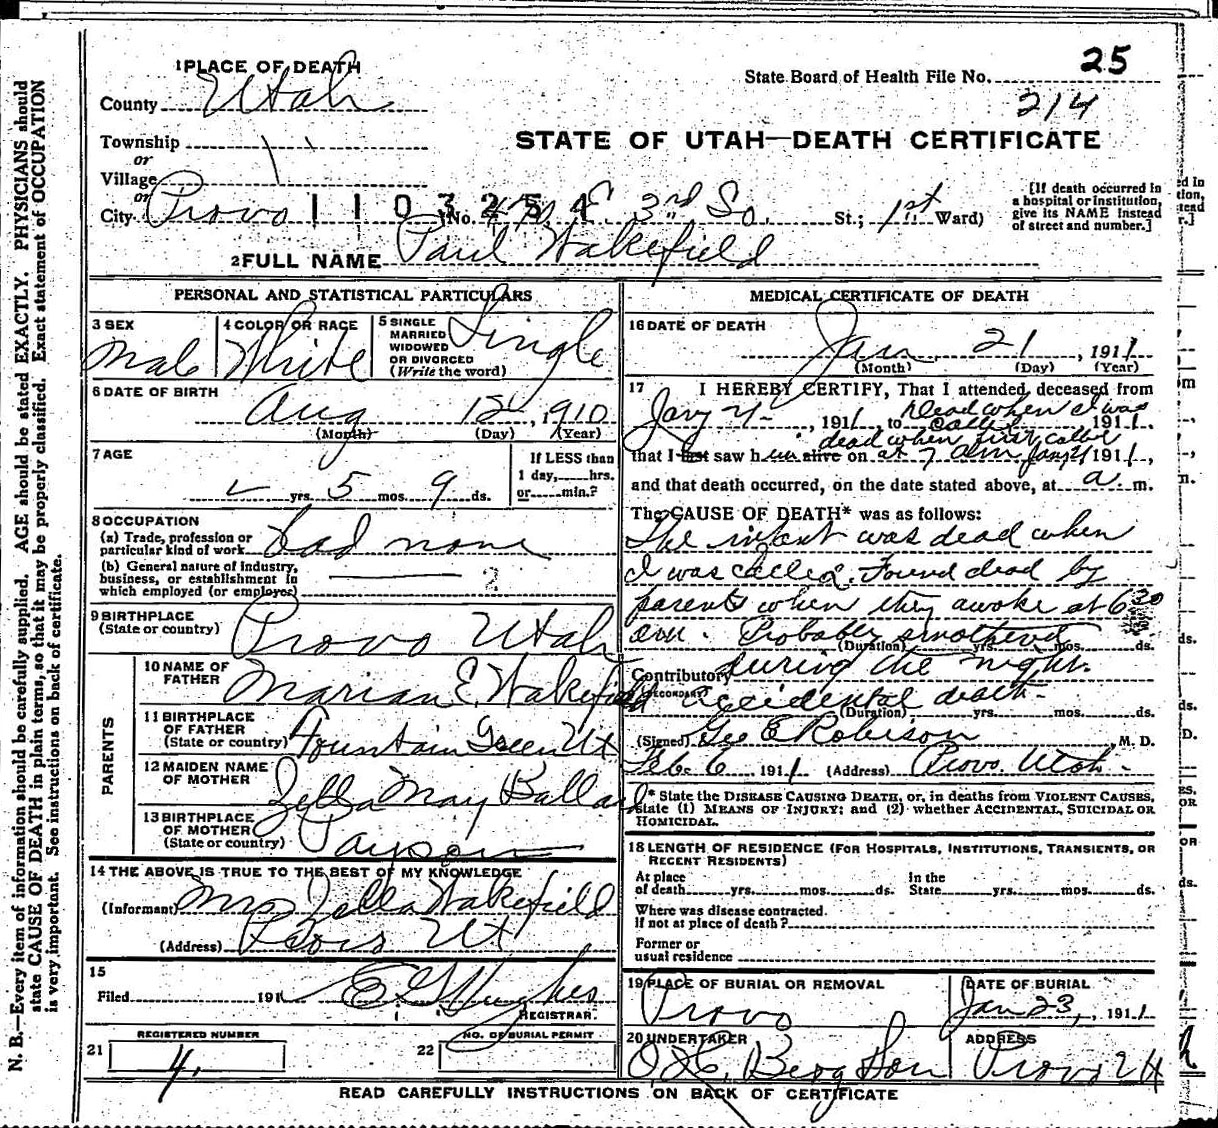 1 PLACE OF DEATH
State Board of Health File No. 25
County Utah
214
Township
STATE OF UTAH—DEATH CERTIFICATE
or
Village
or
City Provo 1103254 No. E. 3rd So. St.; 1st Ward)
[If death occurred in a hospital or institution, give its NAME instead of street and number.]
2 FULL NAME Paul Wakefield
PERSONAL AND STATISTICAL PARTICULARS
3 SEX
Male
4 COLOR OR RACE
White
5 SINGLE
MARRIED
WIDOWED
OR DIVORCED
(Write the word)
Single
6 DATE OF BIRTH
Aug 12, 1910
(Month) (Day) (Year)
7 AGE
yrs. 5 mos. 9 ds.
If LESS than
1 day, hrs.
or min.?
8 OCCUPATION
(a) Trade, profession or
particular kind of work Had none
(b) General nature of industry,
business, or establishment in
which employed (or employer) 2
9 BIRTHPLACE
(State or country) Provo Utah
PARENTS
10 NAME OF
FATHER Marian E. Wakefield
11 BIRTHPLACE
OF FATHER
(State or country) Fountain Green Ut
12 MAIDEN NAME
OF MOTHER Zella May Ballard
13 BIRTHPLACE
OF MOTHER
(State or country) Payson
14 THE ABOVE IS TRUE TO THE BEST OF MY KNOWLEDGE
(Informant) Mrs Zella Wakefield
(Address) Provo Ut
15
Filed 191 E G Hughes
REGISTRAR.
REGISTERED NUMBER
21 4.
NO. OF BURIAL PERMIT
22
MEDICAL CERTIFICATE OF DEATH
16 DATE OF DEATH
Jan 21, 1911
(Month) (Day) (Year)
17 I HEREBY CERTIFY, That I attended deceased from
Jany 21, 1911, to Dead when I was called 1911,
dead when first called
that I last saw him alive on at 7 am Jany 21 1911,
and that death occurred, on the date stated above, at a. m.
The CAUSE OF DEATH* was as follows:
The infant was dead when
I was called. Found dead by
parents when they awoke at 6 30
am. Probably smothered
(Duration) yrs. mos. ds.
Contributory during the night.
(SECONDARY) accidental death.
(Duration) yrs. mos. ds.
(Signed) Geo E Robison, M. D.
Feb. 6, 1911 (Address) Provo. Utah.
* State the DISEASE CAUSING DEATH, or, in deaths from VIOLENT CAUSES,
state (1) MEANS OF INJURY; and (2) whether ACCIDENTAL, SUICIDAL OR
HOMICIDAL.
18 LENGTH OF RESIDENCE (FOR HOSPITALS, INSTITUTIONS, TRANSIENTS, OR
RECENT RESIDENTS)
At place
of death yrs. mos. ds.
In the
State yrs. mos. ds.
Where was disease contracted.
if not at place of death?
Former or
usual residence
19 PLACE OF BURIAL OR REMOVAL
Provo
DATE OF BURIAL
Jan 23, 1911
20 UNDERTAKER
O H. Berg & Son
ADDRESS
Provo Ut
READ CAREFULLY INSTRUCTIONS ON BACK OF CERTIFICATE
N. B.—Every item of information should be carefully supplied. AGE should be stated EXACTLY. PHYSICIANS should
state CAUSE OF DEATH in plain terms, so that it may be properly classified. Exact statement of OCCUPATION
is very important. See instructions on back of certificate.